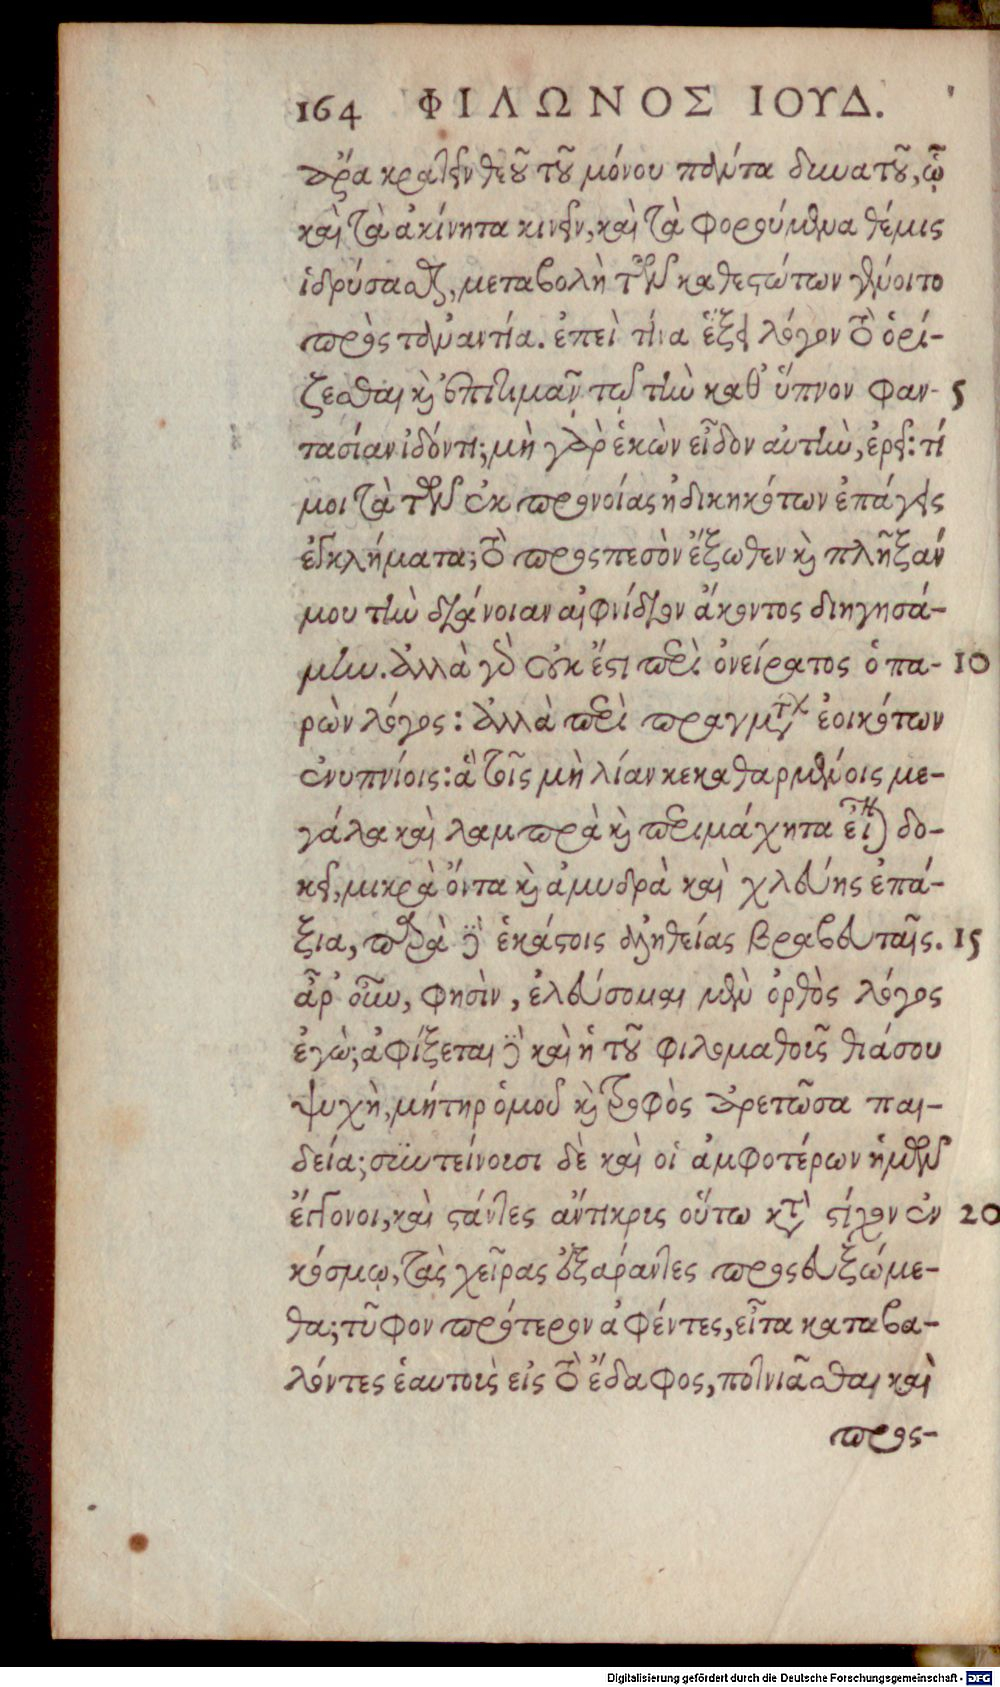 164 ΦΙΛΩΝΟΣ ΙΟΥΔ.
ὅρα κρατεῖν θεοῦ τοῦ μόνου πάντα δυνατοῦ, ᾧ
καὶ τὰ ἀκίνητα κινεῖν, καὶ τὰ φορούμενα θέμις
ἱδρύσασθαι, μεταβολὴ τῶν καθεστώτων γένοιτο
πρὸς τἀναντία. ἐπεὶ τίνα ἕξει λόγον τὸ ὁρί-
ζεσθαι καὶ ἐπιτιμᾶν τῷ τὴν καθ᾽ ὕπνον φαν- 5
τασίαν ἰδόντι; μὴ γὰρ ἑκὼν εἶδον αὐτὴν, ἐρεῖ: τί
μοι τὰ τῶν ἐκ προνοίας ἠδικηκότων ἐπάγεις
ἐγκλήματα; τὸ προςπεσὸν ἔξωθεν καὶ πλῆξάν
μου τὴν διάνοιαν αἰφνίδιον ἄκοντος διηγησά-
μην. ἀλλὰ γὰρ οὐκ ἔστι περὶ ὀνείρατος ὁ πα- 10
ρὼν λόγος: ἀλλὰ περὶ πραγμάτων ἐοικότων
ἐνυπνίοις: ἃ τοῖς μὴ λίαν κεκαθαρμένοις με-
γάλα καὶ λαμπρὰ καὶ περιμάχητα εἶναι δο-
κεῖ, μικρὰ ὄντα καὶ ἀμυδρὰ καὶ χλεύης ἐπά-
ξια, παρὰ τοῖς ἑκάστοις ἀληθείας βραβευταῖς. 15
ἆρ᾽ οὖν, φησὶν, ἐλεύσομαι μὲν ὀρθὸς λόγος
ἐγὼ; ἀφίξεται δὲ καὶ ἡ τοῦ φιλομαθοῦς θιάσου
ψυχὴ, μήτηρ ὁμοῦ καὶ τροφὸς ἀρετῶσα παι-
δεία; συντείνουσι δὲ καὶ οἱ ἀμφοτέρων ἡμῶν
ἔγγονοι, καὶ στάντες ἄντικρις οὕτω κατὰ στίχον ἐν 20
κόσμῳ, τὰς χεῖρας ἐξάραντες προςευξώμε-
θα; τῦφον πρότερον ἀφέντες, εἶτα καταβα-
λόντες ἑαυτοὺς εἰς τὸ ἔδαφος, ποτνιᾶσθαι καὶ
προς-
Digitalisierung gefördert durch die Deutsche Forschungsgemeinschaft - DFG